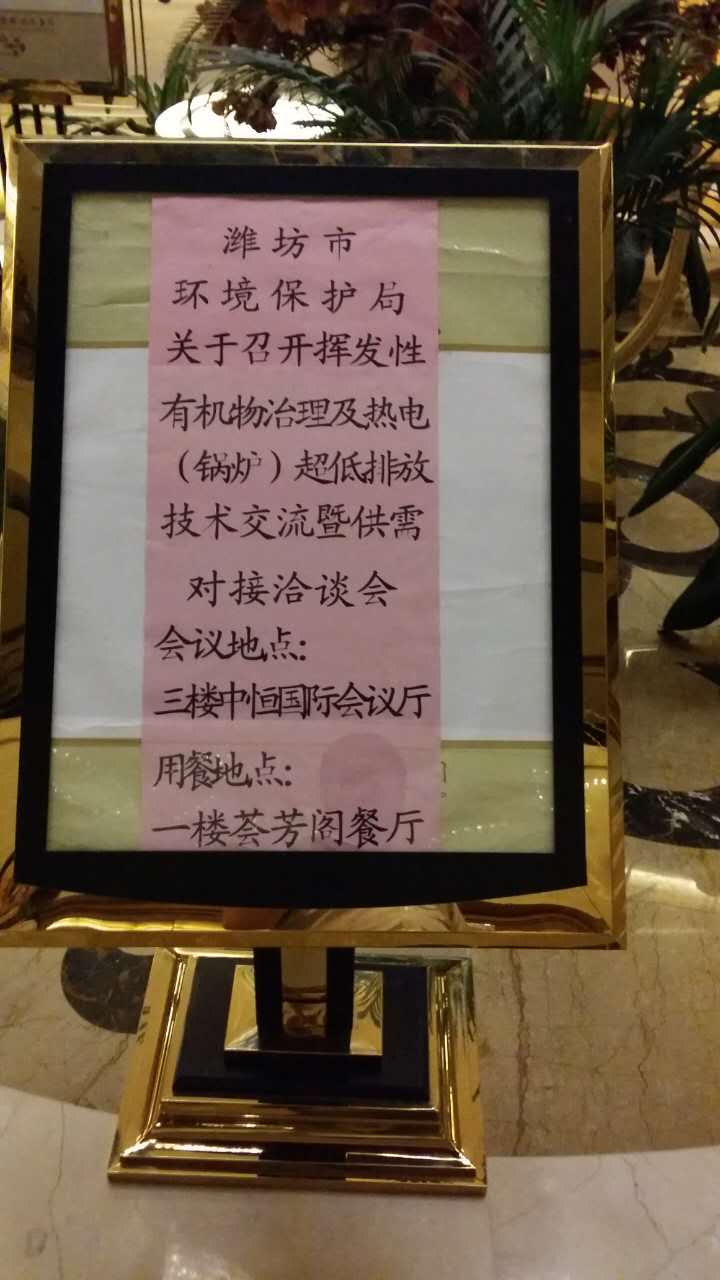 潍坊市
环境保护局
关于召开挥发性
有机物治理及热电
（锅炉）超低排放
技术交流暨供需
对接洽谈会
会议地点：
三楼中恒国际会议厅
用餐地点：
一楼荟芳阁餐厅